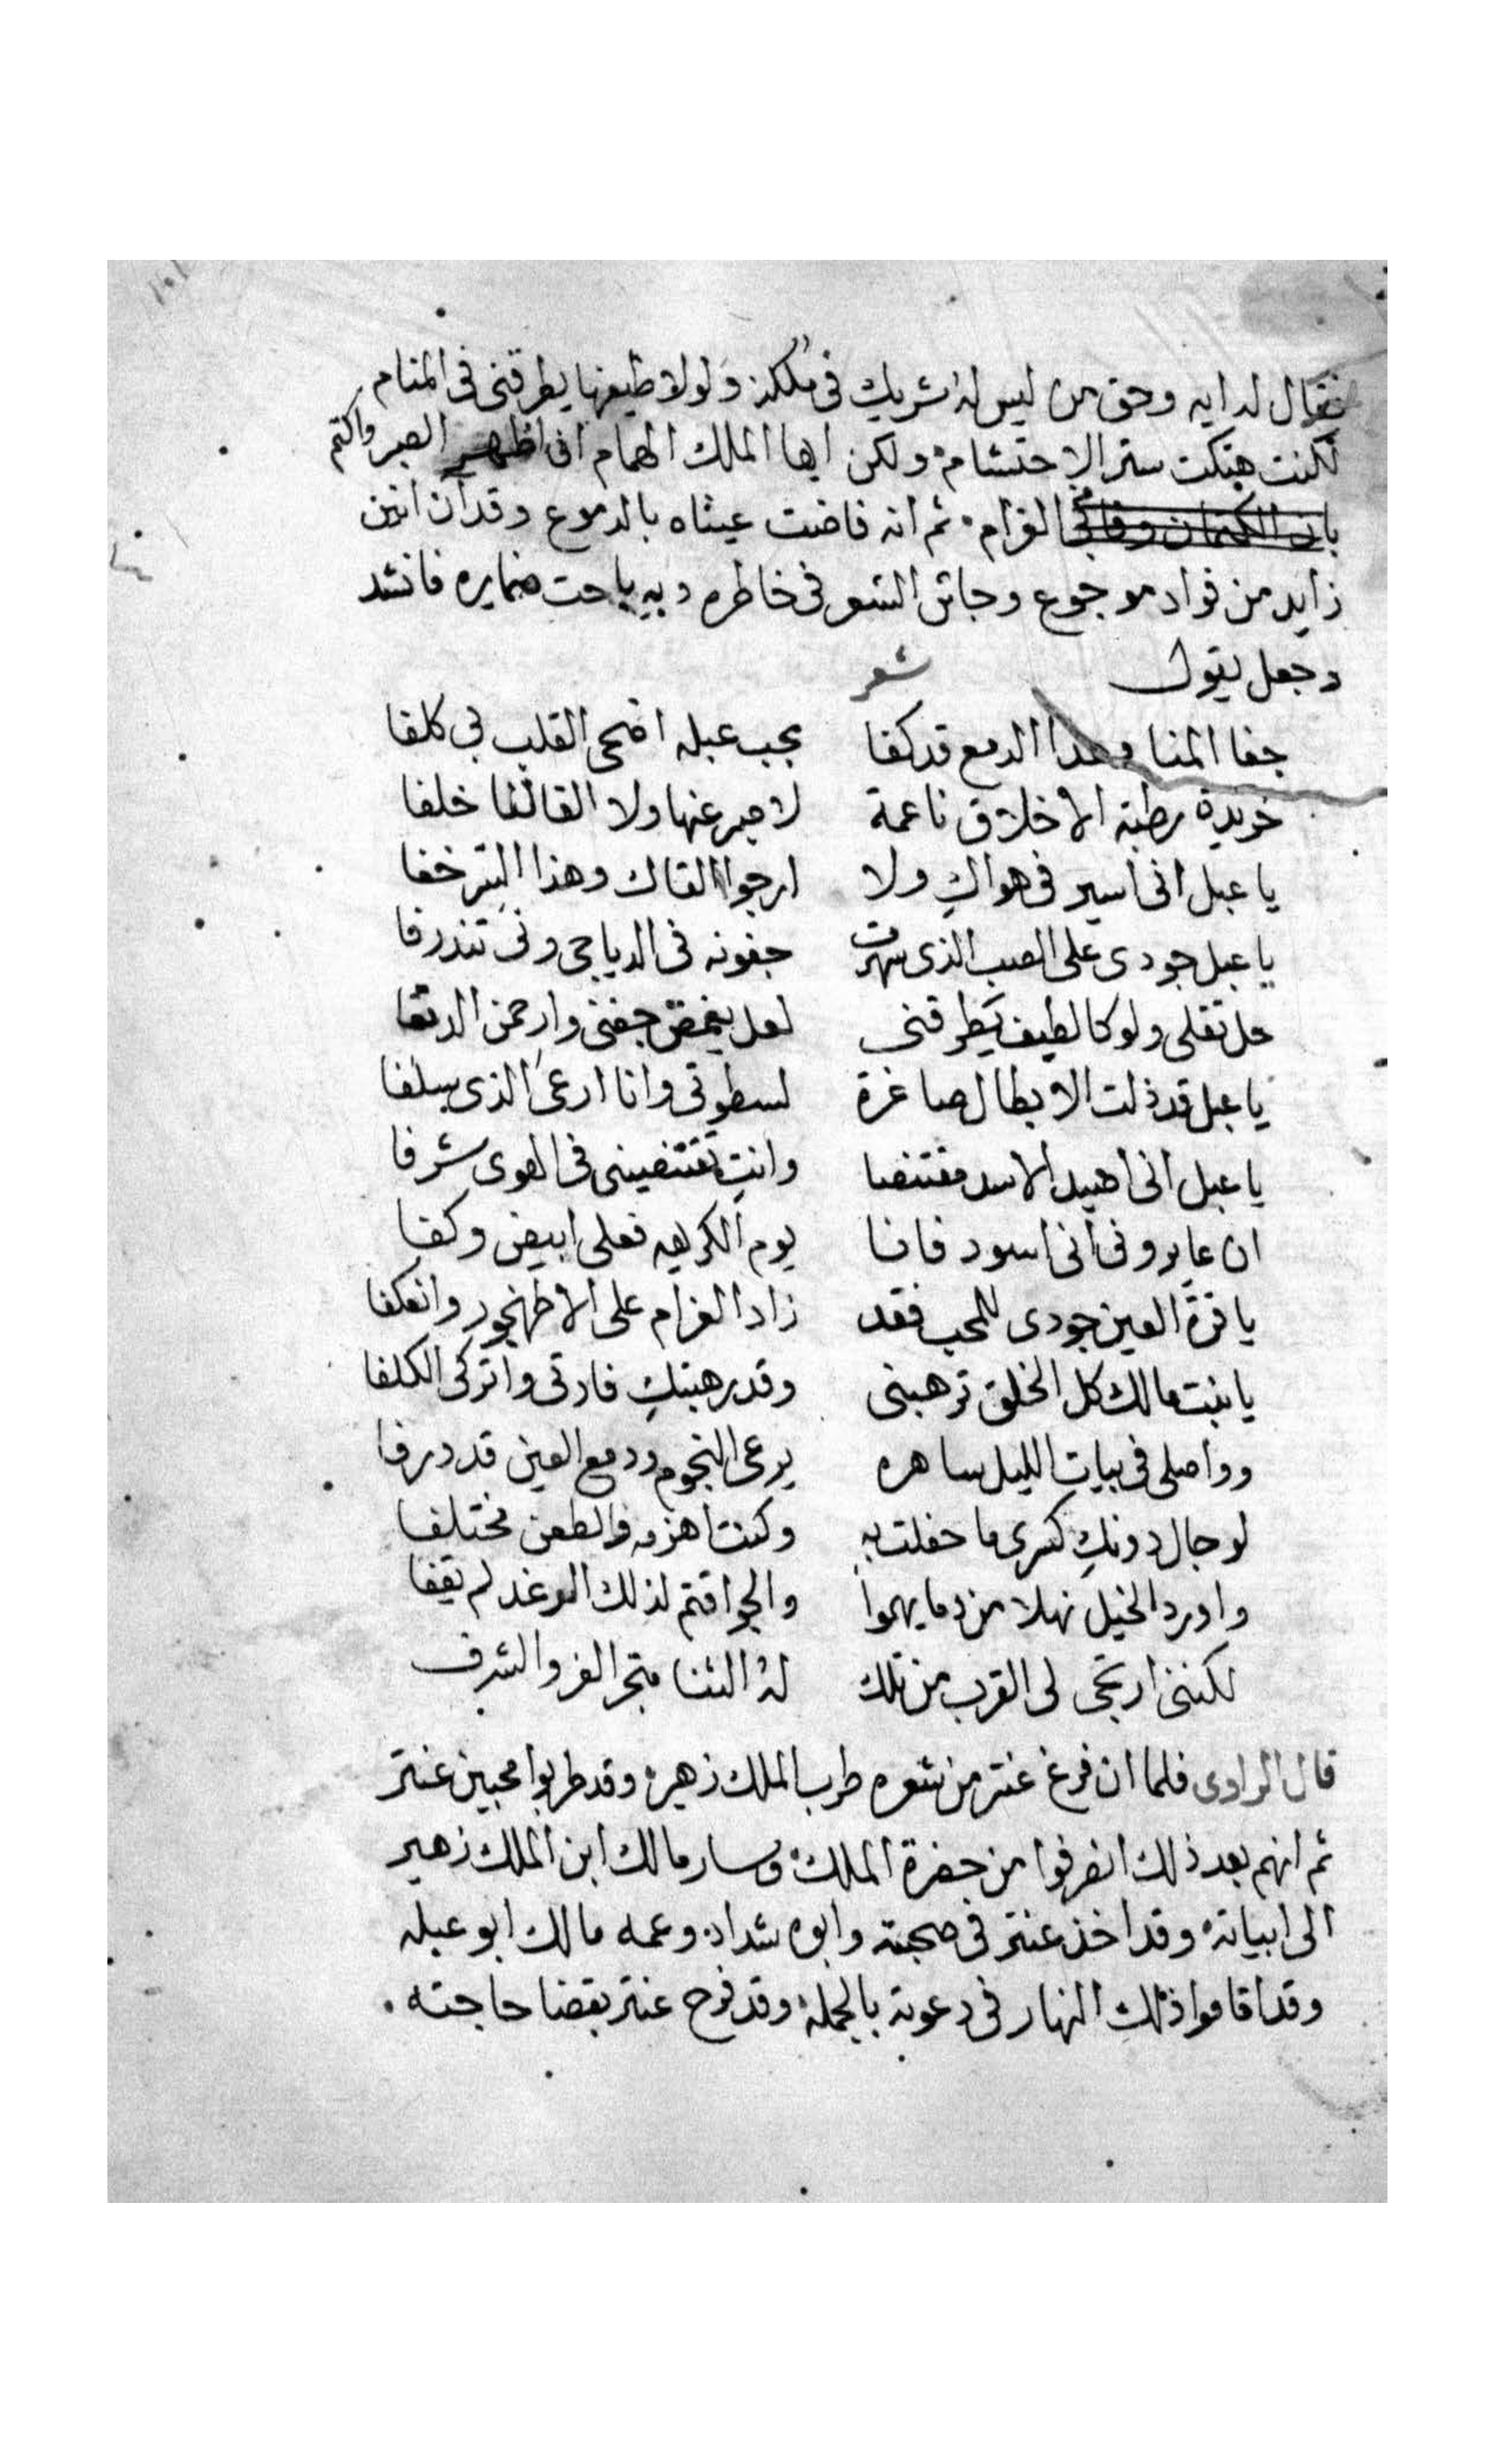 فقال له ايه وحق من ليس له شريك في ملكه ولولا طيفها يطرقني في المنام
لكنت هتكت ستر الاحتشام ولكن ايها الملك الهمام اني اظهر الصبر واكتم
الغرام ثم انه فاضت عيناه بالدموع وقد آن انين
زايد من فواد موجوع وجاش الشعر في خاطره وبه باحت ضمايره فانشد
وجعل يقول شعر
جفا المنا وهدا الدمع قد كفا بحب عبله اضحى القلب لي كلفا
خريدة رطبة الاخلاق ناعمة لا صبر عنها ولا القا لها خلفا
يا عبل اني اسير في هواكِ ولا ارجوا لقاك وهذا الستر خفا
يا عبل جودي على الصب الذي سهرت جفونه في الدياجي
ولو كالطيف يطرقني لعل يغمض جفني وارحمن الدنفا
يا عبل قد ذلت الابطال صاغرة لسطوتي وانا ارعى الذي سلفا
يا عبل اني اصيد الاسد مقتنصا وانتِ تقتنصيني في الهوى شرفا
ان عايروني اني اسود فانا يوم الكريهه فعلي ابيض وكفا
يا قرة العين جودي للمحب فقد زاد الغرام على الاظهر وانعكفا
يا بنت مالك كل الخلق ترهبني وقد رهبتكِ واتركي الكلفا
وواصلي في بيات الليل ساهره يرعى النجوم ودمع العين قد درفا
لو جال دونكِ كسرى ما حفلت به وكنت اهزمه والطعن مختلفا
واورد الخيل نهلا من دمايهموا والجو اقتم لذلك الوغد لم يقفا
لكنني ارتجى لى القرب من تلك له الثنا الفز والشرف
قال الراوي فلما ان فرغ عنتر من شعره طرب الملك زهير وقد طربوا محبين عنتر
ثم انهم بعد ذلك انصرفوا من حضرة الملك وسار مالك ابن الملك زهير
الى ابياته وقد اخذ عنتر في صحبته وابوه شداد وعمه مالك ابو عبله
وقد اقاموا ذلك النهار في دعوته بالجمله وقد فرح عنتر بقضا حاجته